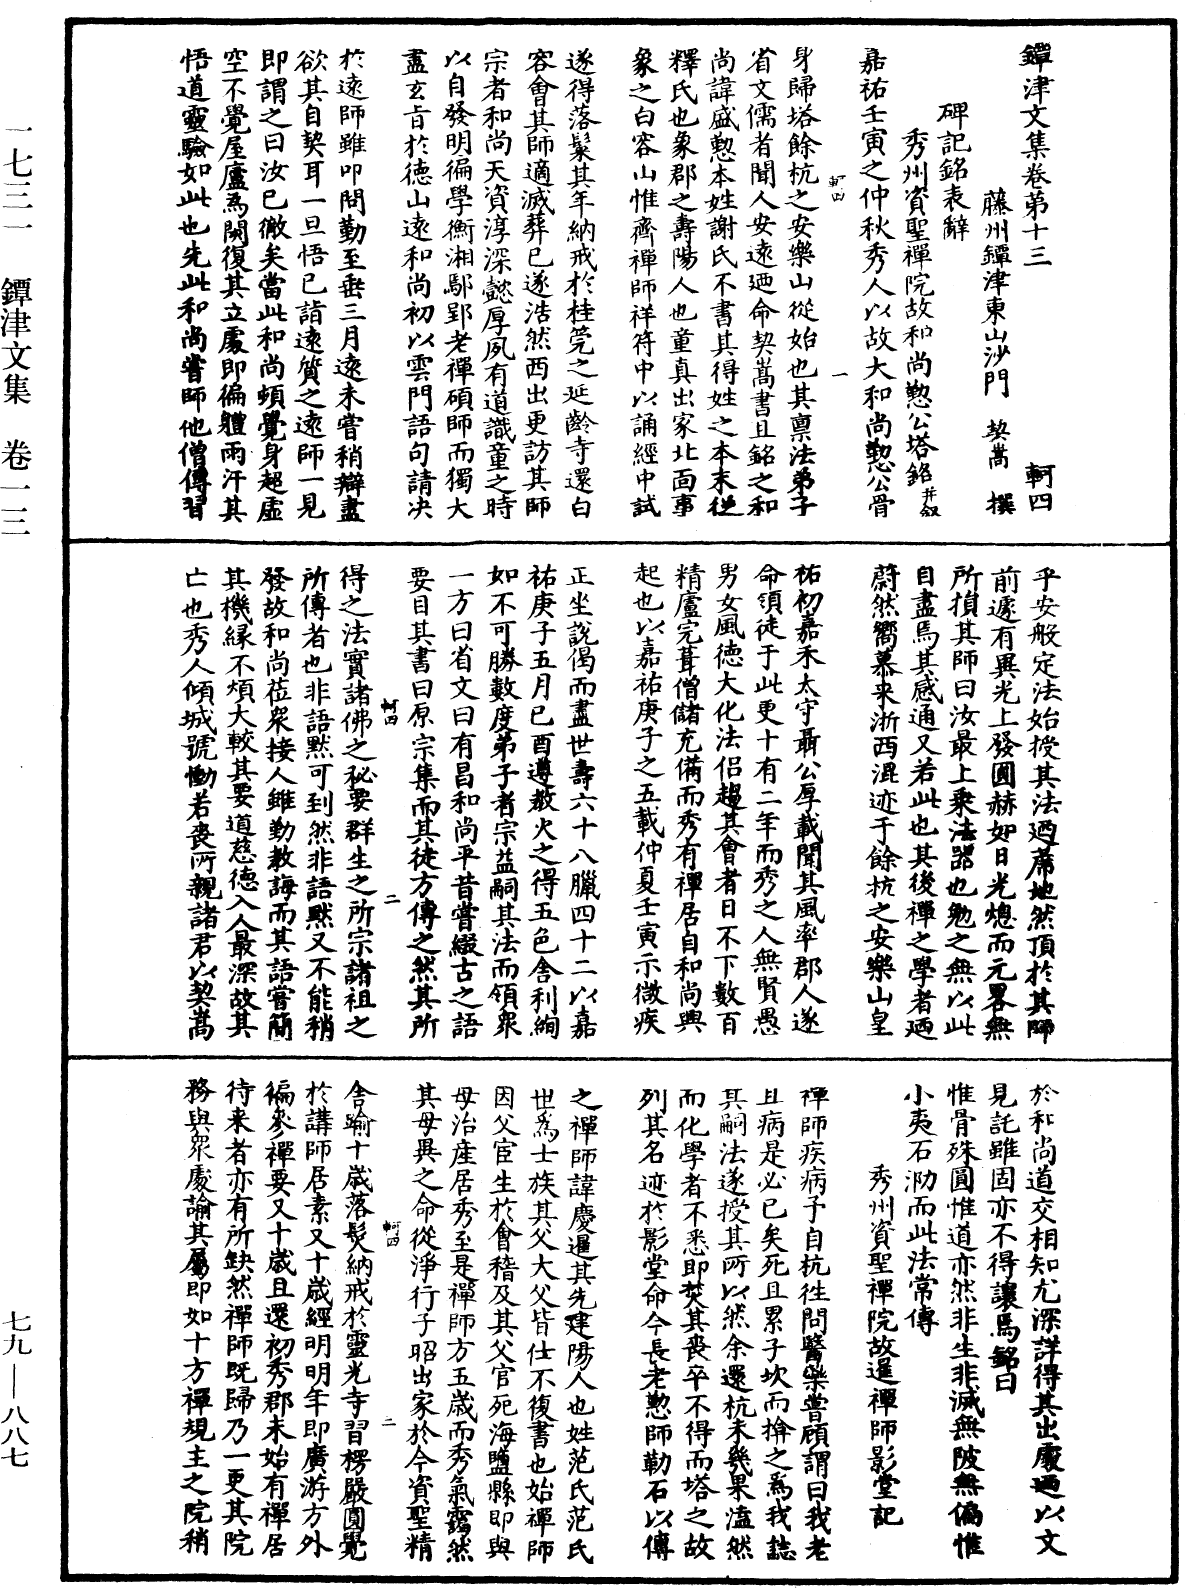 鐔津文集卷第十三　軻四
藤州鐔津東山沙門　契嵩　撰
碑記銘表辭
秀州資聖禪院故和尚懃公塔銘并叙
嘉祐壬寅之仲秋秀人以故大和尚懃公骨
軻四　一
身歸塔餘杭之安樂山從始也其禀法弟子
省文儒者聞人安遠廼命契嵩書且銘之和
尚諱盛懃本姓謝氏不書其得姓之本末從
釋氏也象郡之壽陽人也童真出家北面事
象之白容山惟齊禪師祥符中以誦經中試
遂得落髮其年納戒於桂筦之延齡寺還白
容會其師適滅葬已遂浩然西出更訪其師
宗者和尚天資淳深懿厚夙有道識童之時
以自發明徧學衡湘鄢郢老禪碩師而獨大
盡玄旨於德山遠和尚初以雲門語句請决
於遠師雖叩問勤至垂三月遠未嘗稍辯盡
欲其自契耳一旦悟已詣遠質之遠師一見
即謂之曰汝已徹矣當此和尚頓覺身超虛
空不覺屋廬為閡復其立處即徧體雨汗其
悟道靈驗如此也先此和尚嘗師他僧傳習
乎安般定法始授其法廼席地然頂於其師
前遽有異光上發圓赫如日光熄而元畧無
所損其師曰汝最上乘法器也勉之無以此
自盡焉其感通又若此也其後禪之學者廼
蔚然嚮慕来浙西混迹于餘杭之安樂山皇
祐初嘉禾太守聶公厚載聞其風率郡人遂
命領徒于此更十有二年而秀之人無賢愚
男女風德大化法侣趨其會者日不下数百
精廬完葺僧儲充備而秀有禪居自和尚興
起也以嘉祐庚子之五載仲夏壬寅示微疾
正坐說偈而盡世壽六十八臘四十二以嘉
祐庚子五月己酉遵教火之得五色舍利絢
如不可勝數度弟子者宗益嗣其法而領衆
一方曰省文曰有昌和尚平昔嘗綴古之語
要目其書曰原宗集而其徒方傳之然其所
軻四　二
得之法實諸佛之秘要群生之所宗諸祖之
所傳者也非語黙可到然非語黙又不能稍
發故和尚莅衆接人雖勤教誨而其語嘗簡
其機緣不煩大較其要道慈德入人最深故其
亡也秀人傾城號慟若喪所親諸君以契嵩
於和尚道交相知尤深詳得其出處廼以文
見託雖固亦不得讓焉銘曰
惟骨殊圓惟道亦然非生非滅無陂無偏惟
小夷石泐而此法常傳
秀州資聖禪院故暹禪師影堂記
禪師疾病予自杭徃問醫藥嘗顧謂曰我老
且病是必已矣死且累子坎而揜之為我誌
其嗣法遂授其所以然余還杭未幾果溘然
而化學者不悉即焚其喪卒不得而塔之故
列其名迹於影堂命今長老懃師勒石以傳
之禪師諱慶暹其先建陽人也姓范氏范氏
世為士族其父大父皆仕不復書也始禪師
因父宦生於會稽及其父官死海鹽縣即與
母治產居秀至是禪師方五歲而秀氣藹然
其母異之命從淨行子昭出家於今資聖精
軻四　三
舍踰十歲落髮納戒於靈光寺習楞嚴圓覺
於講師居素又十歲經明明年即廣游方外
徧參禪要又十歲且還初秀郡未始有禪居
待来者亦有所缺然禪師既歸乃一更其院
務與衆處諭其屬即如十方禪規主之院稍
一七三一　鐔津文集　卷一三
七九—八八七